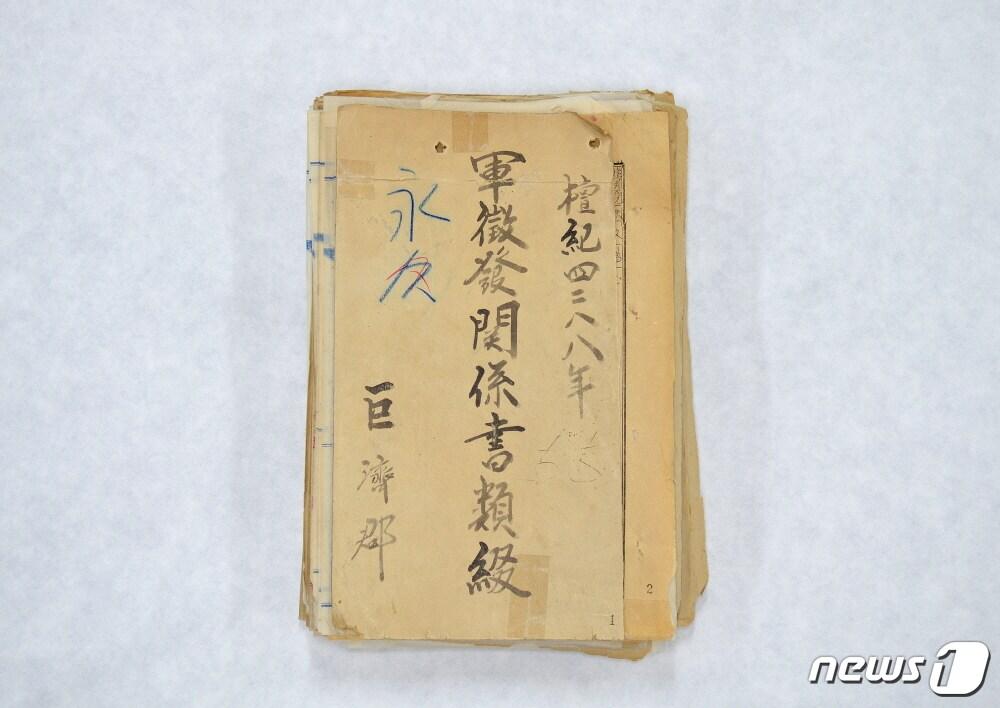 檀紀四二八八年
軍徵發関係書類綴
永久
巨濟郡
1
2
news1